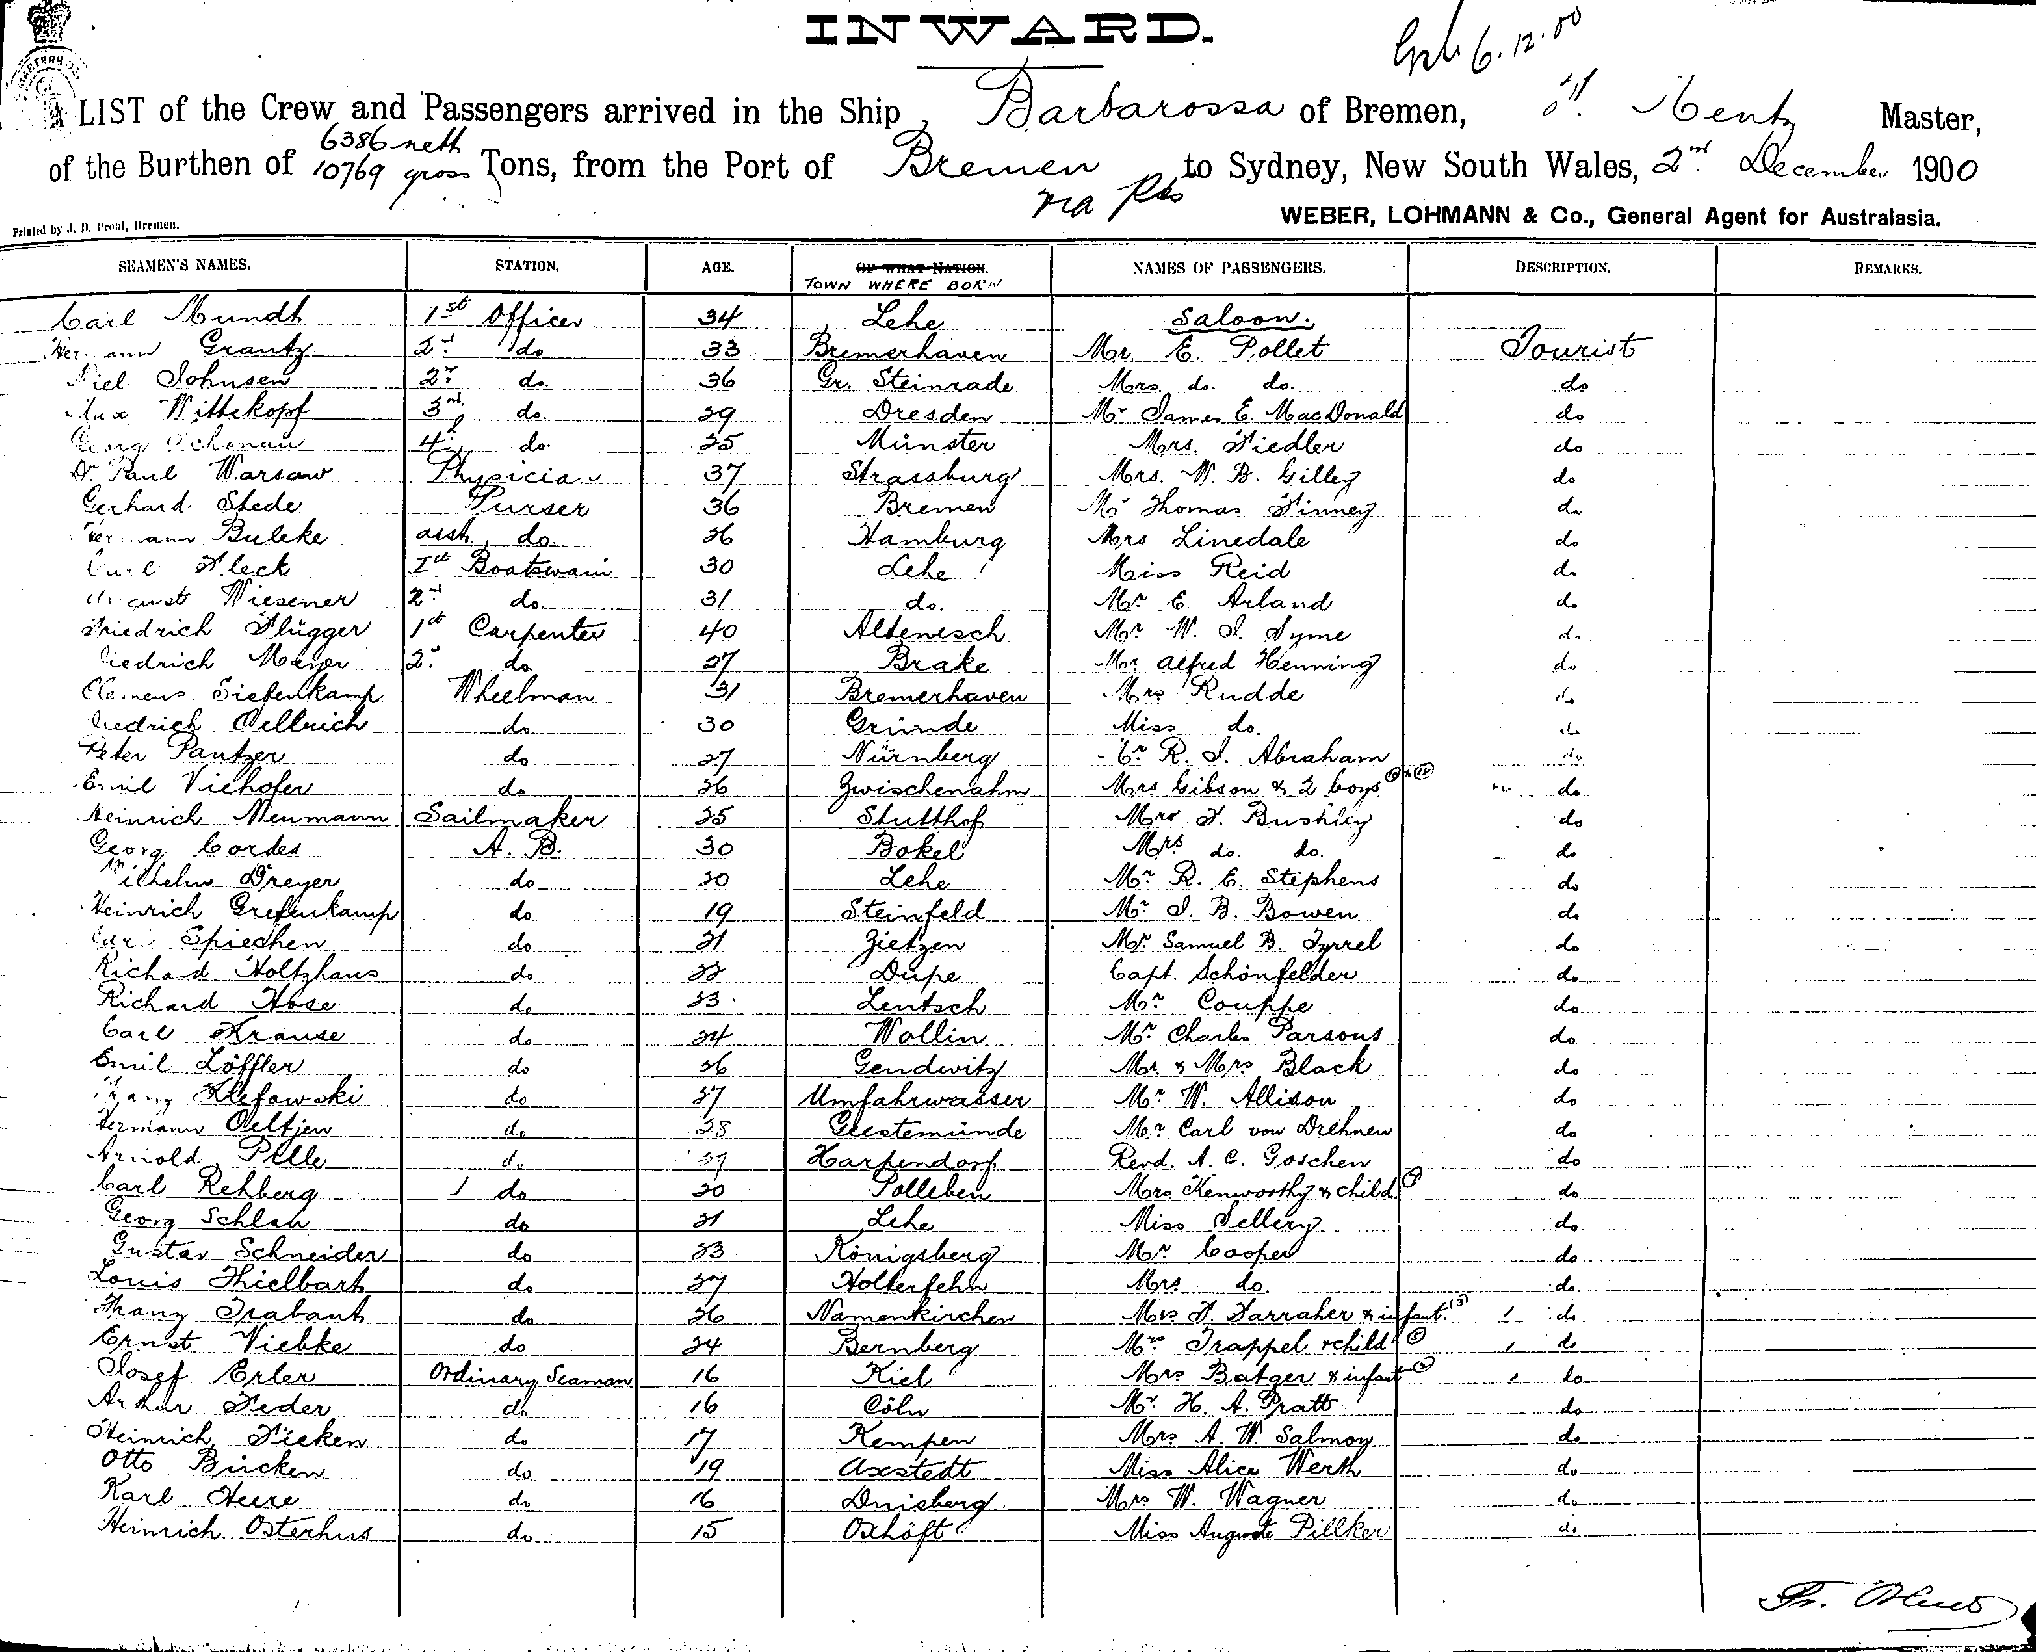 INWARD.
6.12.00
A LIST of the Crew and Passengers arrived in the Ship Barbarossa of Bremen, H. Mentz Master,
6386 nett
of the Burthen of 10769 gross Tons, from the Port of Bremen to Sydney, New South Wales, 2nd December 1900
via Pts
WEBER, LOHMANN & Co., General Agent for Australasia.
Printed by J. D. Bremen.
SEAMEN'S NAMES. STATION. AGE. OF WHAT NATION. NAMES OF PASSENGERS. DESCRIPTION. REMARKS.
TOWN WHERE BORN
Carl Mundt 1st Officer 34 Lehe Saloon.
Hermann Grantz 2nd do 33 Bremerhaven Mr. E. Pollet Tourist
Niel Johnsen 2nd do. 36 Gr. Steinrade Mrs. do. do. do
Max Wittekopf 3rd do. 29 Dresden Mr James E. MacDonald do
Georg Schonau 4th do. 25 Münster Mrs. Fiedler do
Dr. Paul Warsow Physician 37 Strassburg Mrs. W. B. Gilley do
Gerhard Stede Purser 36 Bremen Mr Thomas Finney do
Hermann Buleke asst. do. 26 Hamburg Mrs Linedale do
Carl Fleck Ist Boatswain 30 Lehe Miss Reid do
August Wiesener 2nd do. 31 do. Mr E. Arland do
Friedrich Flügger 1st Carpenter 40 Altenesch Mr W. J. Syme do
Diedrich Meyer 2nd do 27 Brake Mr Alfred Henning do
Clemens Siefenkamp Wheelman 31 Bremerhaven Mrs Rudde do
Diedrich Oellrich do 30 Gründe Miss do. do
Peter Pantzer do 27 Nürnberg R. J. Abraham do
Emil Viehofer do 26 Zwischenahn Mrs Gibson & 2 boys do
Heinrich Neumann Sailmaker 25 Stutthof Mr F. Bushby do
Georg Cordes A. B. 30 Bokel Mrs do. do. do
Wilhelm Dreyer do 20 Lehe Mr R. E. Stephens do
Heinrich Grefenkamp do 19 Steinfeld Mr J. B. Bowen do
Carl Spiechen do 21 Zietzen Mr. Samuel B. Tyrrel do
Richard Holtzhaus do 22 Düpe Capt. Schönfelder do
Richard Hose do 23 Lentsch Mr Couppe do
Carl Krause do 24 Wollin Mr Charles Parsons do
Emil Löffler do 26 Gendwitz Mr & Mrs Black do
Franz Klefowski do 27 Umfahrwasser Mr W. Allison do
Hermann Oeltjen do 28 Geestemünde Mr Carl von Drehnen do
Arnold Pelle do 27 Harpendorf Revd. A. C. Goschen do
Carl Rehberg do 20 Polleben Mrs Kenworthy & child do
Georg Schlau do 21 Lehe Miss Sellery do
Gustav Schneider do 23 Königsberg Mr Cooper do
Louis Thielbart do 27 Holterfehn Mrs do. do
Franz Trabant do 26 Namenkirchen Mrs F. Darraher & infant. (3) 1 do
Ernst Viebke do 24 Bernberg Mrs Trappel & child 1 do
Josef Erler Ordinary Seaman 16 Kiel Mrs Batger & infant 1 do
Arthur Feder do 16 Cöln Mr. H. A. Pratt do
Heinrich Ficken do 17 Kempen Mrs A. W. Salmon do
Otto Bücken do 19 Axstedt Miss Alice Werth do
Karl Heere do 16 Duisberg Mrs W. Wagner do
Heinrich Osterhus do 15 Oxhöft Miss Auguste Pillker do
Fr.